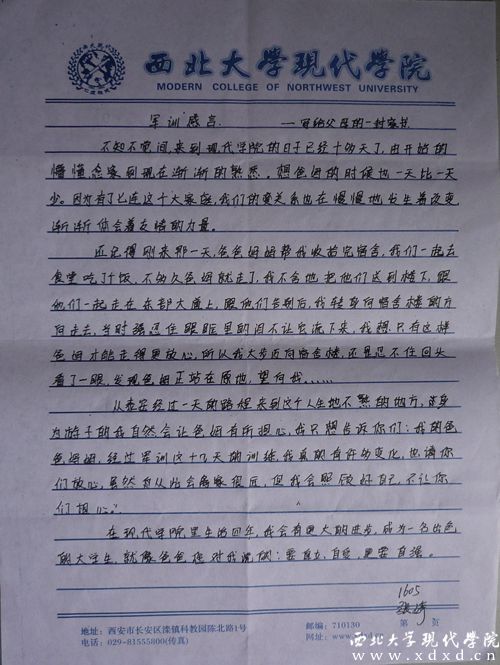 西北大学现代学院
MODERN COLLEGE OF NORTHWEST UNIVERSITY
军训感言
——写给父母的一封家书
不知不觉间,来到现代学院的日子已经十多天了,由开始的
懵懂恋家到现在渐渐的熟悉,想爸妈的时候也一天比一天
少。因为有了七连这个大家庭,我们的关系也在慢慢地发生着改变
渐渐体会着友情的力量。
还记得刚来那一天,爸爸妈妈帮我收拾完宿舍,我们一起去
食堂吃了饭,不多久爸妈就走了,我不舍地把他们送到楼下,跟
他们一起走在东部大道上,跟他们告别后,我转身向宿舍楼的方
向走去,当时强忍住眼眶里的泪不让它流下来,我想只有这样
爸妈才能走得更放心,所以我大步迈向宿舍楼,还是忍不住回头
看了一眼,发现爸妈正站在原地,望向我……
从 经过一天的路程来到这个人生地不熟的地方,身
为游子的我自然会让爸妈有所担心,我只想告诉你们:我的爸
爸妈妈,经过军训这十几天的训练我真的有许多变化,也请你
们放心,虽然 会离家很远,但我会照顾好自己,不让你
们担心。
在现代学院里生活四年,我会有更大的进步,成为一名出色
的大学生,就像爸爸您对我说的:要自立,自爱,更要自强。
1605
张
地址:西安市长安区滦镇科教园陈北路1号
电话:029-81555000(传真)
邮编:710130
网址:www.
第 页
西北大学现代学院
www.xdxd.cn